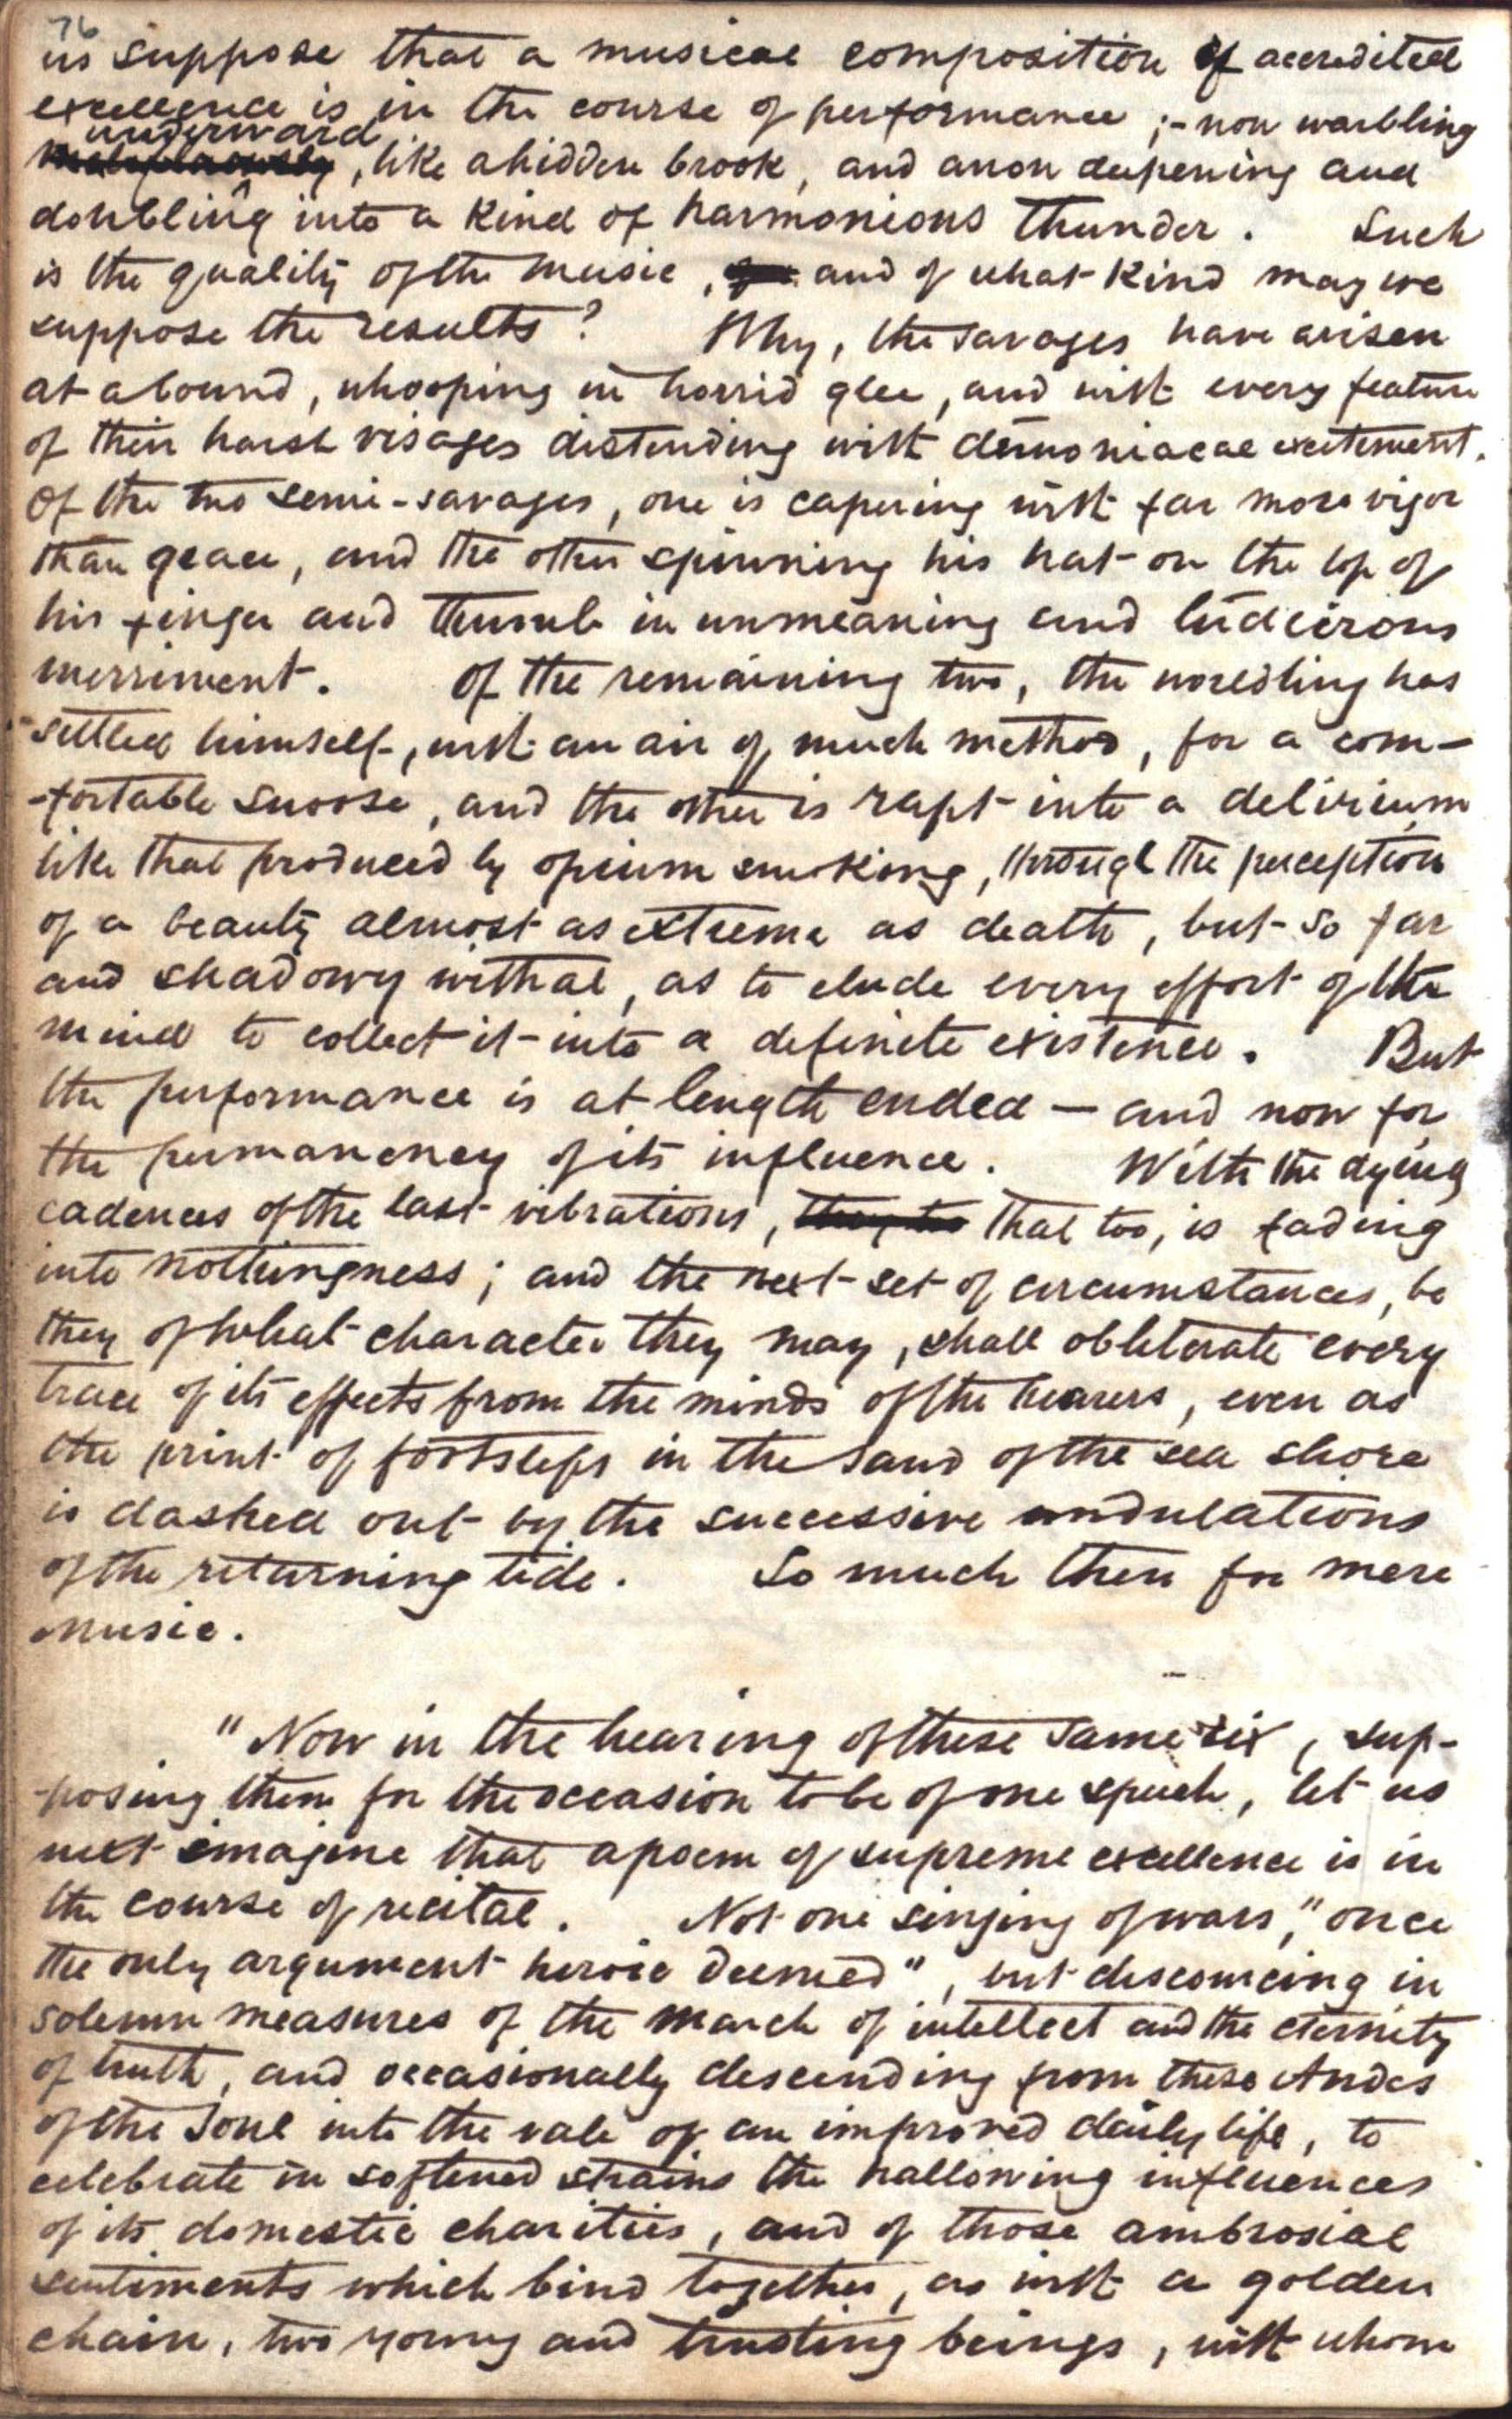 76
us suppose that a musical composition of accredited
excellence is in the course of performance ;- now warbling
underward
, like a hidden brook, and anon deepening and
doubling into a kind of harmonious thunder. Such
is the quality of the music, and of what kind may we
suppose the results? Why, the savages have arisen
at a bound, whooping in horrid glee, and with every feature
of their harsh visages distending with demoniacal excitement.
Of the two semi-savages, one is capering with far more vigor
than grace, and the other spinning his hat on the top of
his finger and thumb in unmeaning and ludicrous
merriment. Of the remaining two, the worldling has
settled himself, with an air of much method, for a com-
-fortable snoose, and the other is rapt into a delirium
like that produced by opium smoking, through the perception
of a beauty almost as extreme as death, but so far
and shadowy withal, as to elude every effort of the
mind to collect it into a definite existence. But
the performance is at length ended — and now for
the permanency of its influence. With the dying
cadences of the last vibrations, they too that too, is fading
into nothingness; and the next set of circumstances, be
they of what character they may, shall obliterate every
trace of its effects from the minds of the hearers, even as
the print of footsteps in the sand of the sea shore
is dashed out by the successive undulations
of the returning tide. So much then for mere
music.
"Now in the hearing of these same six, sup-
-posing them for the occasion to be of one speech, let us
next imagine that a poem of supreme excellence is in
the course of recital. Not one singing of wars, "once
the only argument heroic deemed", but discoursing in
solemn measures of the march of intellect and the eternity
of truth, and occasionally descending from these Andes
of the soul into the vale of an improved daily life, to
celebrate in softened strains the hallowing influences
of its domestic charities, and of those ambrosial
sentiments which bind together, as with a golden
chain, two young and trusting beings, with whom